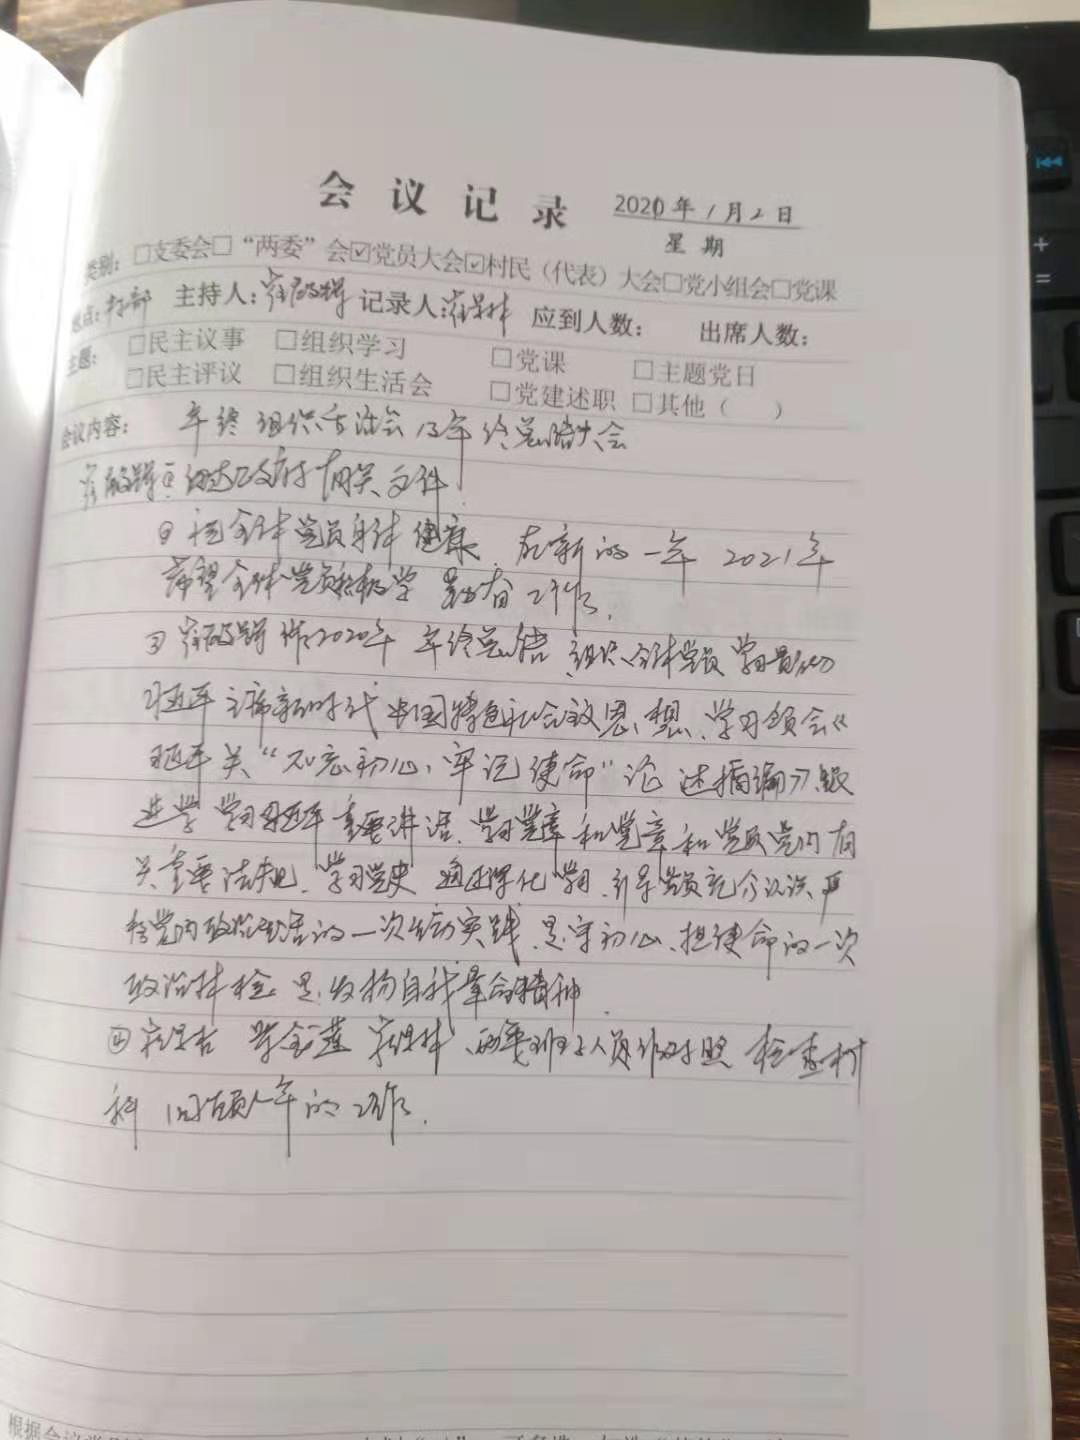 会 议 记 录 2021年1月2日
星 期
类别：□支委会□“两委”会☑党员大会☑村民（代表）大会□党小组会□党课
地点：村部 主持人： 记录人： 应到人数： 出席人数：
主题： □民主议事 □组织学习 □党课 □主题党日
□民主评议 □组织生活会 □党建述职 □其他（ ）
会议内容： 年终组织生活会 年终总结大会
传达 政府有关文件
全体党员身体健康、在新的一年 2021年
希望全体党员积极学 工作。
③ 作2020年 年终总结、组织全体党员学习
习近平主席新时代中国特色社会主义思想、学习领会《
习近平关“不忘初心、牢记使命”论述摘编》跟
进学 学习习近平重要讲话、学习党章和党章和党员党内有
关重要法规、学习党史 通过深化学习、引导党员充分认识、严
肃党内政治生活的一次生动实践、是守初心、担使命的一次
政治体检 是发扬自我革命精神
④ 两委班子人员作对照 检查材
料 回顾一年的工作。
根据会议类别